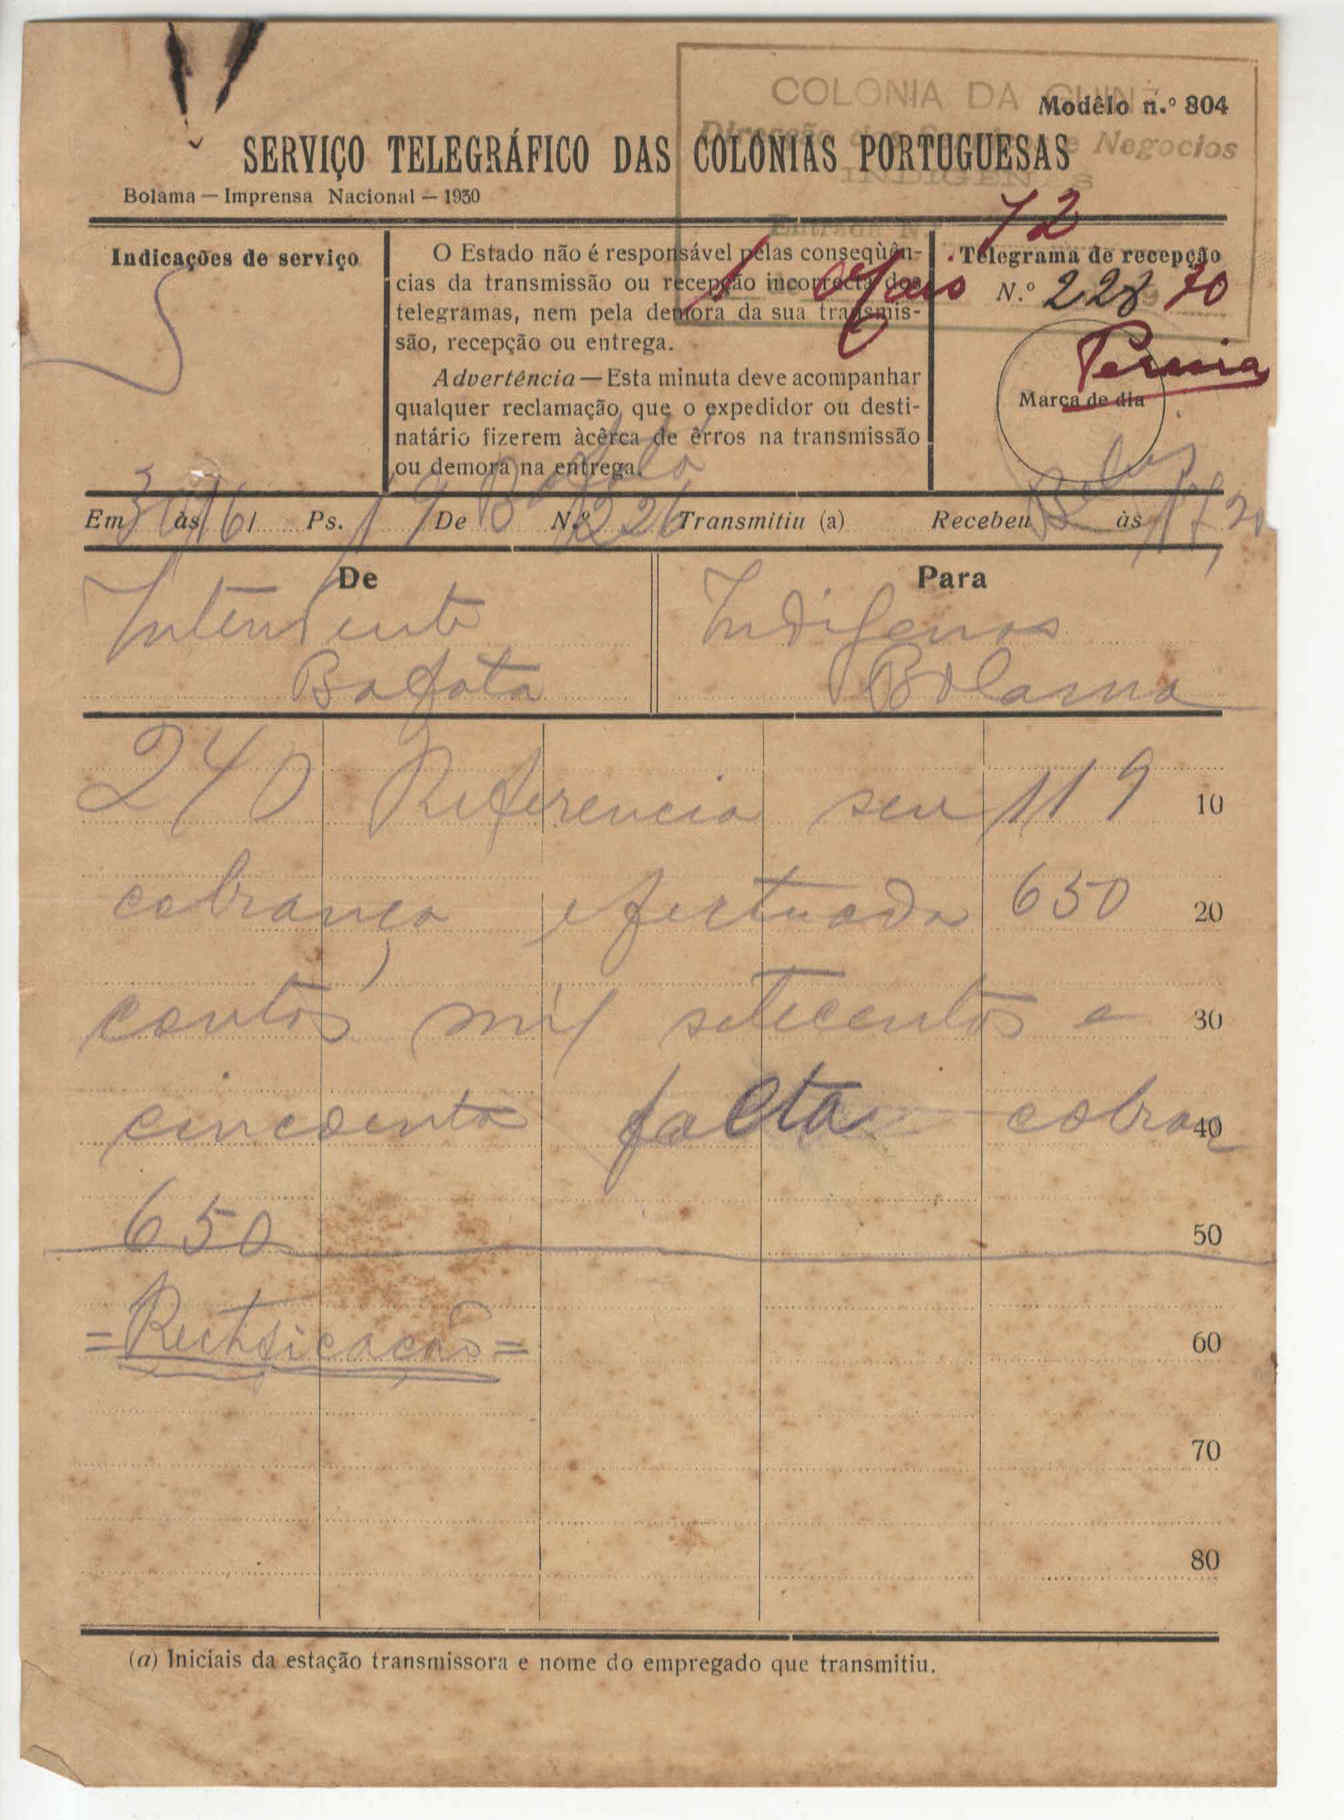 COLONIA DA GUINÉ
Modêlo n.º 804
Direcção dos Serviços e Negocios
INDIGENAS
SERVIÇO TELEGRÁFICO DAS COLÓNIAS PORTUGUESAS
Bolama — Imprensa Nacional — 1930
Entrada N.º 72
Indicações de serviço
O Estado não é responsável pelas conseqùên-
cias da transmissão ou recepção incorrecta dos
telegramas, nem pela demora da sua transmis-
são, recepção ou entrega.
Advertência — Esta minuta deve acompanhar
qualquer reclamação que o expedidor ou desti-
natário fizerem àcêrca de êrros na transmissão
ou demora na entrega.
Telegrama de recepção
N.º 228
1 Maio 30
Marca de dia
Em 30 às 16 Ps. 19 De Bafatá N.º 226 Transmitiu (a) Recebeu às 17,20
De
Intendente
Bafata
Para
Indigenas
Bolama
240 Referencia seu 119 10
cobrança efectuada 650 20
contos mil setecentos e 30
cincoenta falta cobrar 40
650 50
= Rectificação = 60
70
80
(a) Iniciais da estação transmissora e nome do empregado que transmitiu.